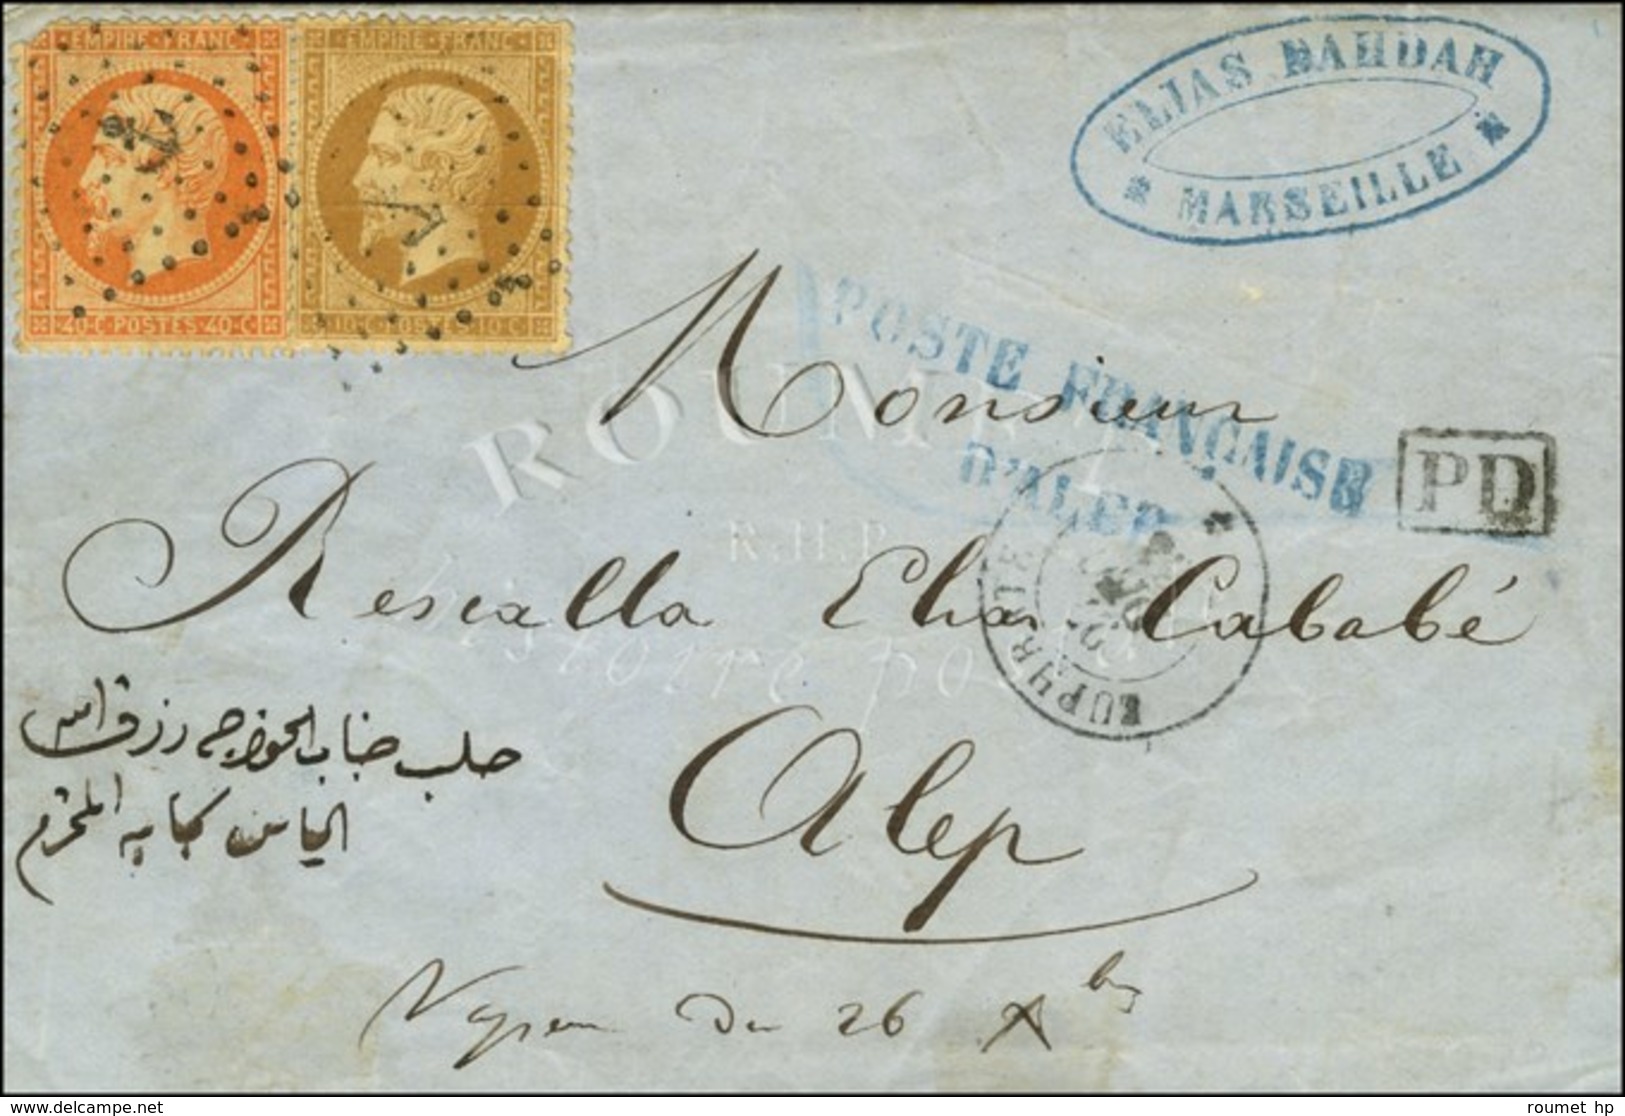 EMPIRE · FRANC
EMPIRE · FRANC
40·C·POSTES·40·C
10·C·POSTES·10·C
ELIAS DAHDAH
* MARSEILLE *
Monsieur
POSTE FRANÇAISE
D'ALEP
PD
ROUMET
R.H.P.
histoire postale
Rescalla Elias Cababé
EUPHRATE
حلب جناب الخواجه رزق الله
الياس كبابه المحترم
Alep
du 26 Xbre
delcampe.net
roumet hp